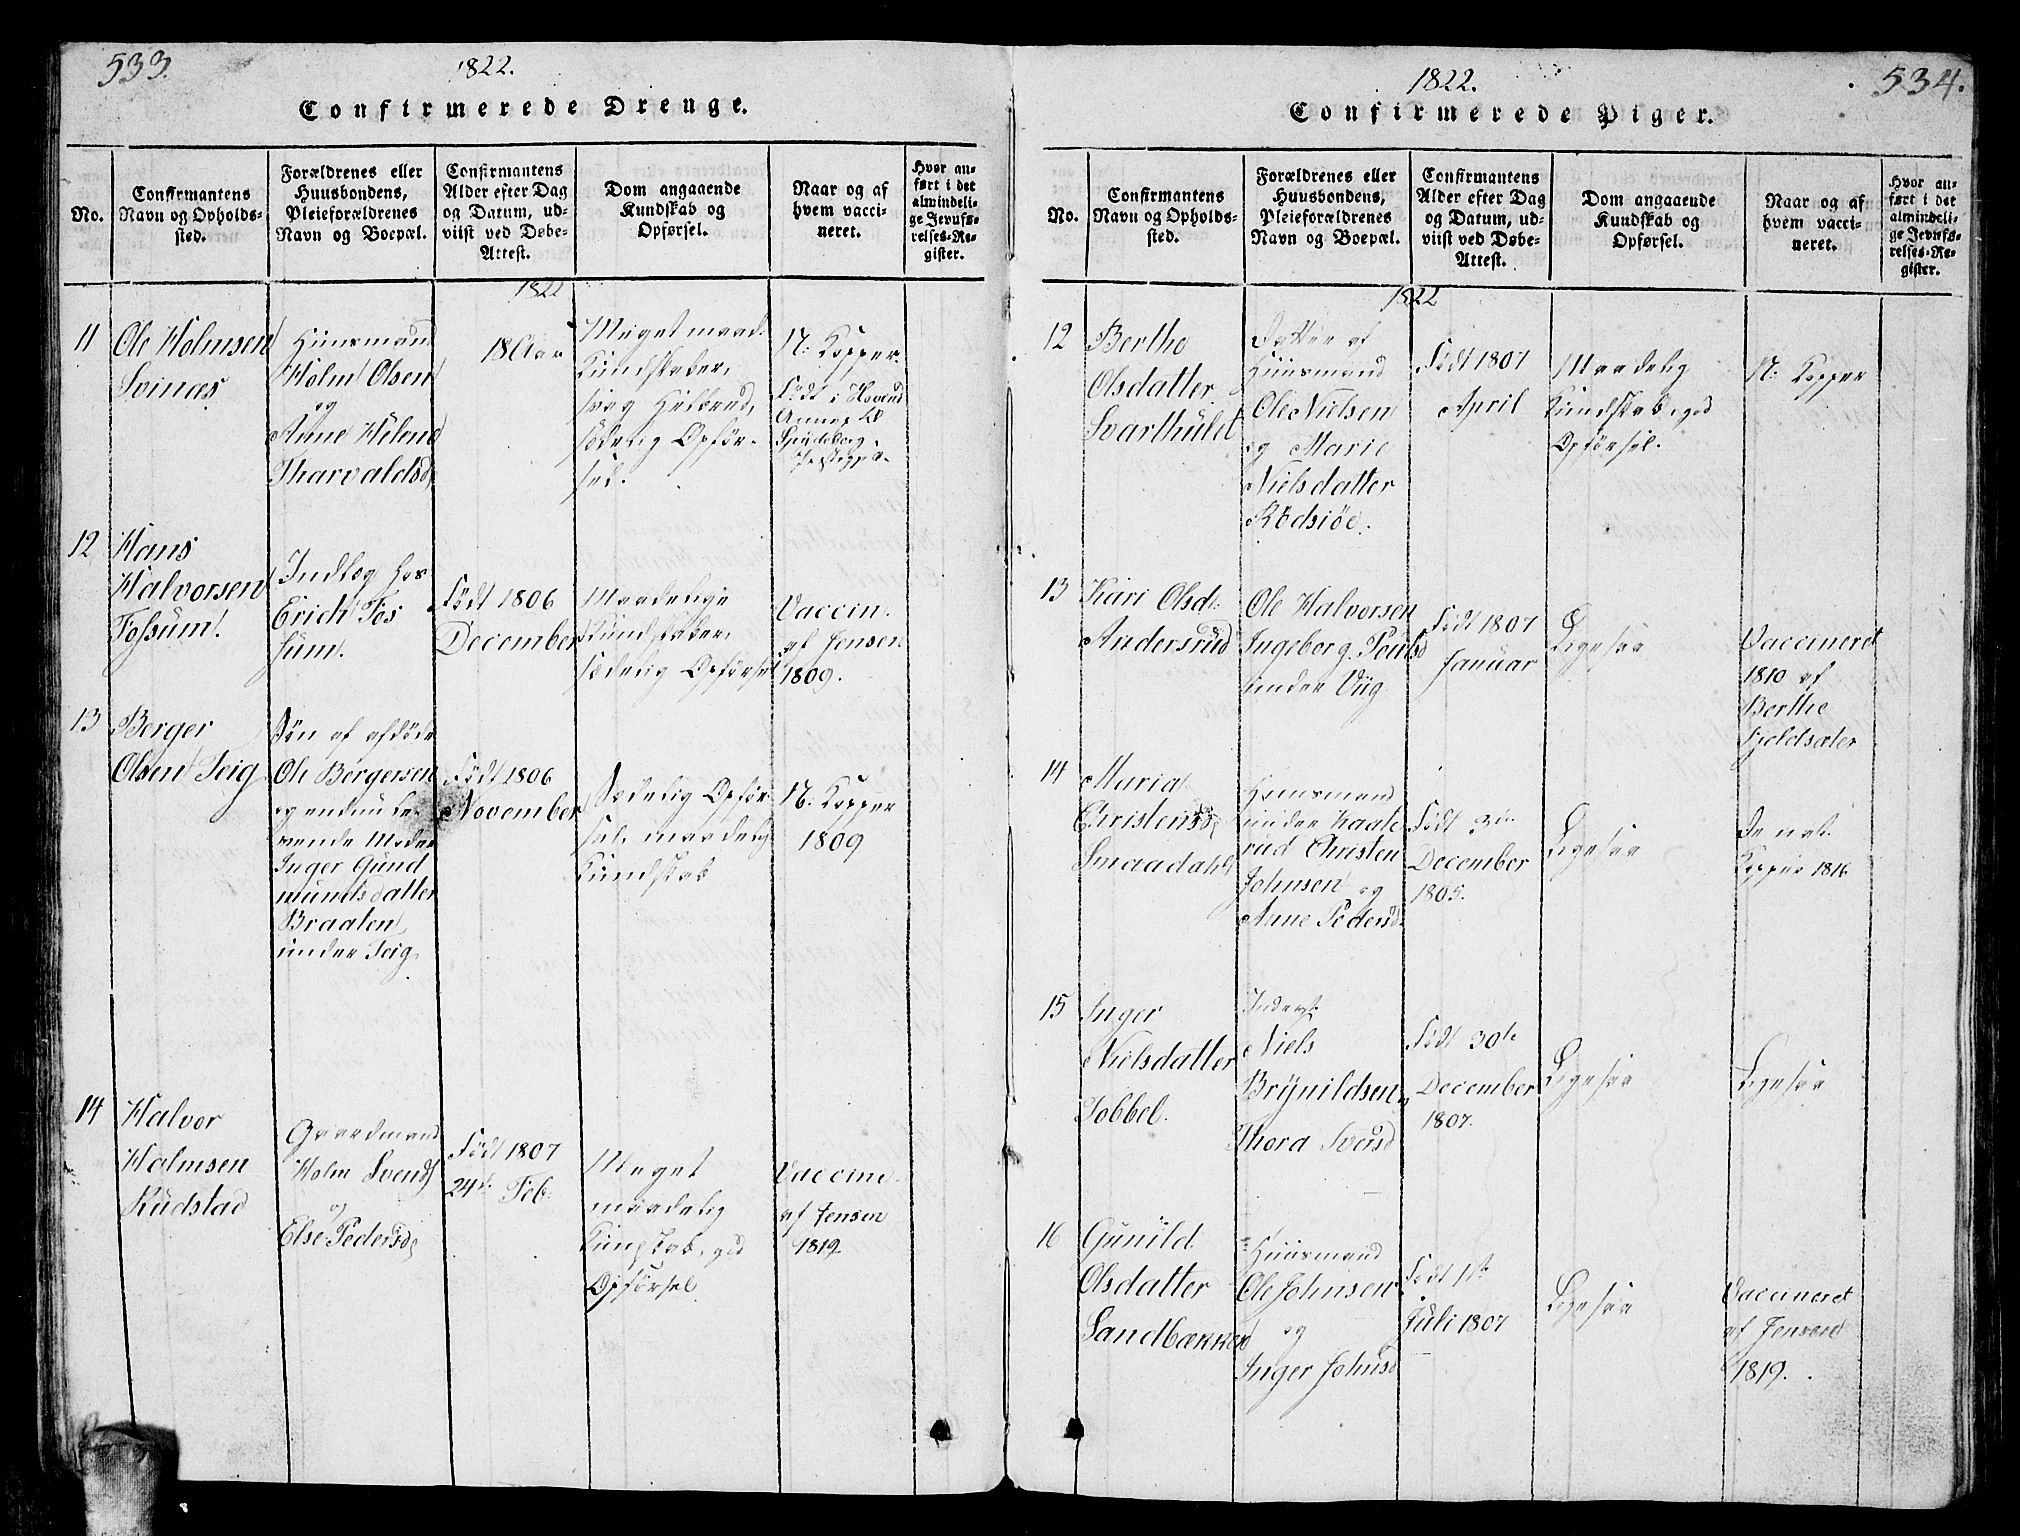 533.
1822.
Confirmerede Drenge.
No.
Confirmantens
Navn og Opholds-
sted.
Forældrenes eller
Huusbondens,
Pleieforældrenes
Navn og Boepæl.
Confirmantens
Alder efter Dag
og Datum, ud-
viist ved Døbe-
Attest.
Dom angaaende
Kundskab og
Opførsel.
Naar og af
hvem vacci-
neret.
Hvor an-
ført i det
almindeli-
ge Jevnfø-
relses-Re-
gister.
1822
11
Ole Holmsen
Svinæs
Huusmand
Holm Olsen
og
Anne Helene
Tharvaldsd
18 Aar
Meget maad.
Kundskaber,
svag Helbred,
sædelig Opfør-
sel.
N: Kopper.
Født i
Annex til
12
Hans
Halvorsen
Fossum.
Indlæg hos
Erich Fos
sum.
Født 1806
December
Maadelige
Kundskaber,
sædelig Opførsel
Vaccin.
af Jensen
1809.
13
Berger
Olsen Teig
Søn af afdøde
Ole Bergersen
og endnu le-
vende Moder
Inger Gund
mundsdatter
Braaten
under Teig
Født 1806
November
Sædelig Opfør
sel, maadelig
Kundskab
N. Kopper
1809
14
Halvor
Holmsen
Rudstad
Gaardmand
Holm Svends
og
Else Pedersd
Født 1807
24de Feb.
Meget
maadelig
Kundskab, god
Opførsel
Vaccine.
af Jensen
1819
1822.
534.
Confirmerede Piger.
No.
Confirmantens
Navn og Opholds-
sted.
Forældrenes eller
Huusbondens,
Pleieforældrenes
Navn og Boepæl.
Confirmantens
Alder efter Dag
og Datum, ud-
viist ved Døbe-
Attest.
Dom angaaende
Kundskab og
Opførsel.
Naar og af
hvem vacci-
neret.
Hvor an-
ført i det
almindeli-
ge Jevnfø-
relses-Re-
gister.
1822
12
Berthe
Olsdatter
Svarthuld
Datter af
Huusmand
Ole Nielsen
og Marie
Nielsdatter
Rödsiöe.
Født 1807
April
Maadelig
Kundskab, god
Opførsel.
N: Kopper
13
Kari Olsd.
Andersrud
Ole Halvorsen
Ingeborg Poulsd
under Viig
Født 1807
Januar
Ligesaa
Vaccineret
1810 af
Berthe
Fjeldsæter
14
Maria
Christensd
Smaadahl
Huusmand
under Kaate
rud Christen
Johnsen og
Anne Pedersd.
Født 3die
December
1805.
Ligesaa
De nat.
Kopper 1816
15
Inger
Nielsdatter
Tobbel.
Inderst
Niels
Brynildsen
Thora Sversd
Født 30te
December
1807.
Ligesaa
Ligesaa
16
Gunild
Olsdatter
Sandbækken
Huusmand
Ole Johnsen
og
Inger Johnsd
Født 1ste
Juli 1807
Ligesaa
Vaccineret
af Jensen
1819.